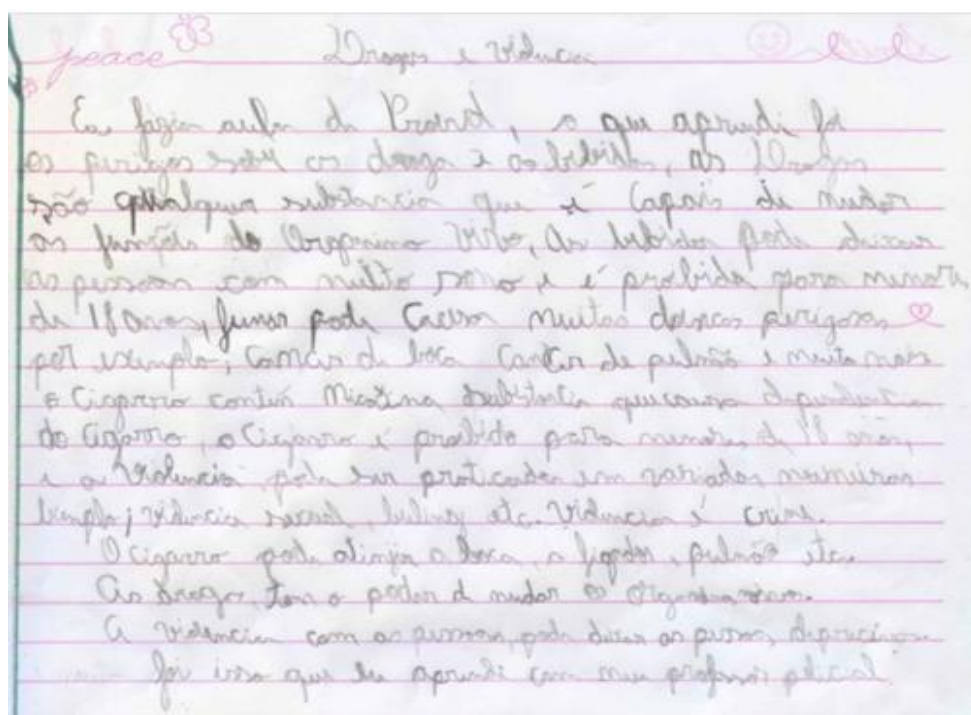 peace Drogas e Violencia
Eu fazia aula do Proerd, o que aprendi foi
os perigos sobre as droga e as bebidas, as Drogas
são qualquer substancia que é Capais de mudar
as função do Organismo Vivo, As bebidas pode deixar
as pessoas com muito sono, e é proibida para menores
de 18 anos, fumar pode Causar muitas doenças perigosas
por exemplo; Cancer de boca Cancer de pulmão e muita mais
o Cigarro contém Nicotina substancia que causa dependencia
do cigarro, o Cigarro é proibido para menores de 18 anos,
e a Violencia pode ser praticada em variadas maneiras
violencia sexual, buling etc. Violencia é crime.
O cigarro pode atinjir a boca, o figado, pulmão etc.
As drogas, tem o poder d mudar o
A violencia com as pessoas, pode deixar as pessoas
foi isso que eu aprendi com meu professor policial